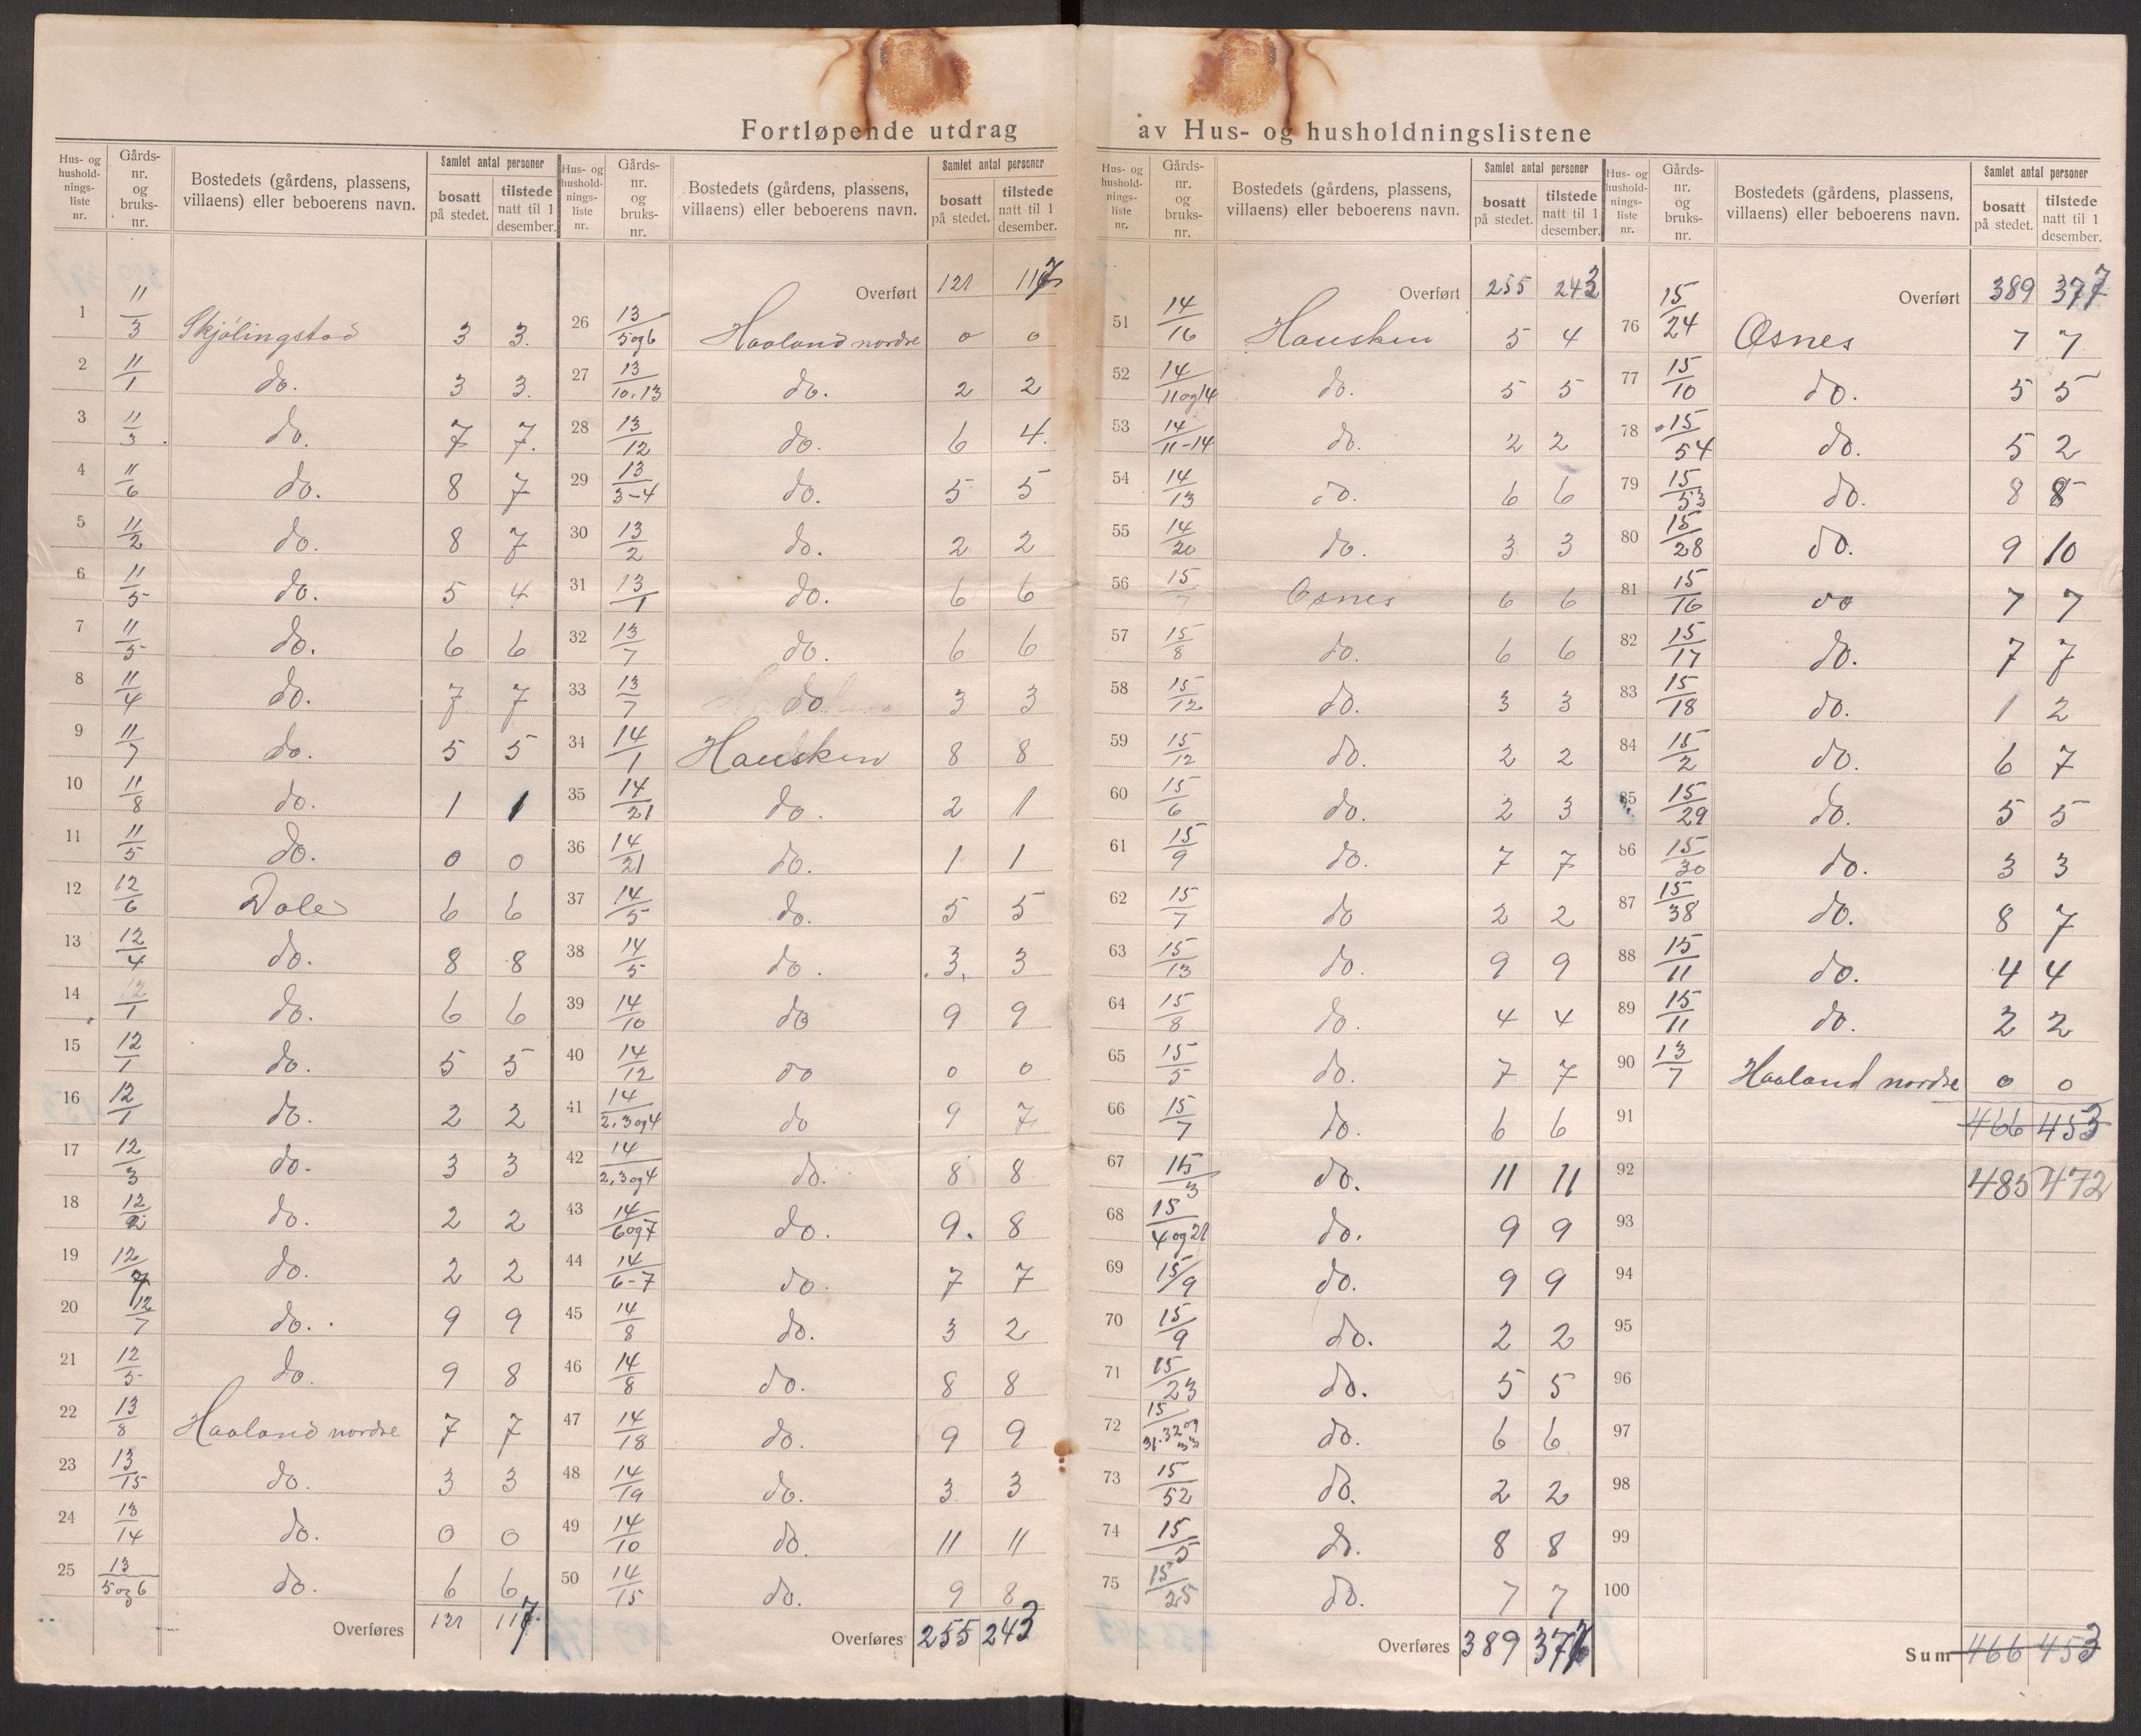 Fortløpende utdrag av Hus- og husholdningslistene
Hus- og husholdningsliste nr. | Gårdsnr. og bruksnr. | Bostedets (gårdens, plassens, villaens) eller beboerens navn. | Samlet antal personer bosatt på stedet. | tilstede natt til 1 desember.
1 11/3 Skjölingstad 3 3.
2 11/1 do. 3 3.
3 11/3 do. 7 7.
4 11/6 do. 8 7
5 11/2 do. 8 7
6 11/5 do. 5 4
7 11/5 do. 6 6
8 11/4 do. 7 7
9 11/7 do. 5 5
10 11/8 do. 1 1
11 11/5 do. 0 0
12 12/6 Dale 6 6
13 12/4 do. 8 8
14 12/1 do. 6 6
15 12/1 do. 5 5
16 12/1 do. 2 2
17 12/3 do. 3 3
18 12/2 do. 2 2
19 12/7 do. 2 2
20 12/7 do. 9 9
21 12/5 do. 9 8
22 13/8 Haaland nordre 7 7
23 13/15 do. 3 3
24 13/14 do. 0 0
25 13/5og6 do. 6 6
Overføres 121 117
Hus- og husholdningsliste nr. | Gårdsnr. og bruksnr. | Bostedets (gårdens, plassens, villaens) eller beboerens navn. | Samlet antal personer bosatt på stedet. | tilstede natt til 1 desember.
Overført 121 117
26 13/5og6 Haaland nordre 0 0
27 13/10.13 do. 2 2
28 13/12 do. 6 4.
29 13/3-4 do. 5 5
30 13/2 do. 2 2
31 13/1 do. 6 6
32 13/7 do. 6 6
33 13/7 do 3 3
34 14/1 Hausken 8 8
35 14/21 do. 2 1
36 14/21 do. 1 1
37 14/5 do. 5 5
38 14/5 do. 3. 3
39 14/10 do 9 9
40 14/12 do 0 0
41 14/2,3og4 do 9 7
42 14/2,3og4 do. 8 8
43 14/6og7 do. 9. 8
44 14/6-7 do. 7 7
45 14/8 do. 3 2
46 14/8 do. 8 8
47 14/18 do. 9 9
48 14/19 do. 3 3
49 14/10 do. 11 11
50 14/15 do. 9 8
Overføres 255 243
Hus- og husholdningsliste nr. | Gårdsnr. og bruksnr. | Bostedets (gårdens, plassens, villaens) eller beboerens navn. | Samlet antal personer bosatt på stedet. | tilstede natt til 1 desember.
Overført 255 243
51 14/16 Hausken 5 4
52 14/11og14 do. 5 5
53 14/11-14 do. 2 2
54 14/13 do. 6 6
55 14/20 do. 3 3
56 15/7 Osnes 6 6
57 15/8 do. 6 6
58 15/12 do. 3 3
59 15/12 do. 2 2
60 15/6 do. 2 3
61 15/9 do. 7 7
62 15/7 do 2 2
63 15/13 do. 9 9
64 15/8 do. 4 4
65 15/5 do. 7 7
66 15/7 do. 6 6
67 15/3 do. 11 11
68 15/4og21 do. 9 9
69 15/9 do. 9 9
70 15/9 do. 2 2
71 15/23 do. 5 5
72 15/31.32og33 do. 6 6
73 15/52 do. 2 2
74 15/5 do. 8 8
75 15/25 do. 7 7
Overføres 389 377
Hus- og husholdningsliste nr. | Gårdsnr. og bruksnr. | Bostedets (gårdens, plassens, villaens) eller beboerens navn. | Samlet antal personer bosatt på stedet. | tilstede natt til 1 desember.
Overført 389 377
76 15/24 Osnes 7 7
77 15/10 do. 5 5
78 15/54 do. 5 2
79 15/53 do. 8 8
80 15/28 do. 9 10
81 15/16 do 7 7
82 15/17 do. 7 7
83 15/18 do. 1 2
84 15/2 do. 6 7
85 15/29 do. 5 5
86 15/30 do. 3 3
87 15/38 do. 8 7
88 15/11 do. 4 4
89 15/11 do. 2 2
90 13/7 Haaland nordre 0 0
91 466 453
92 485 472
93
94
95
96
97
98
99
100
Sum 466 453